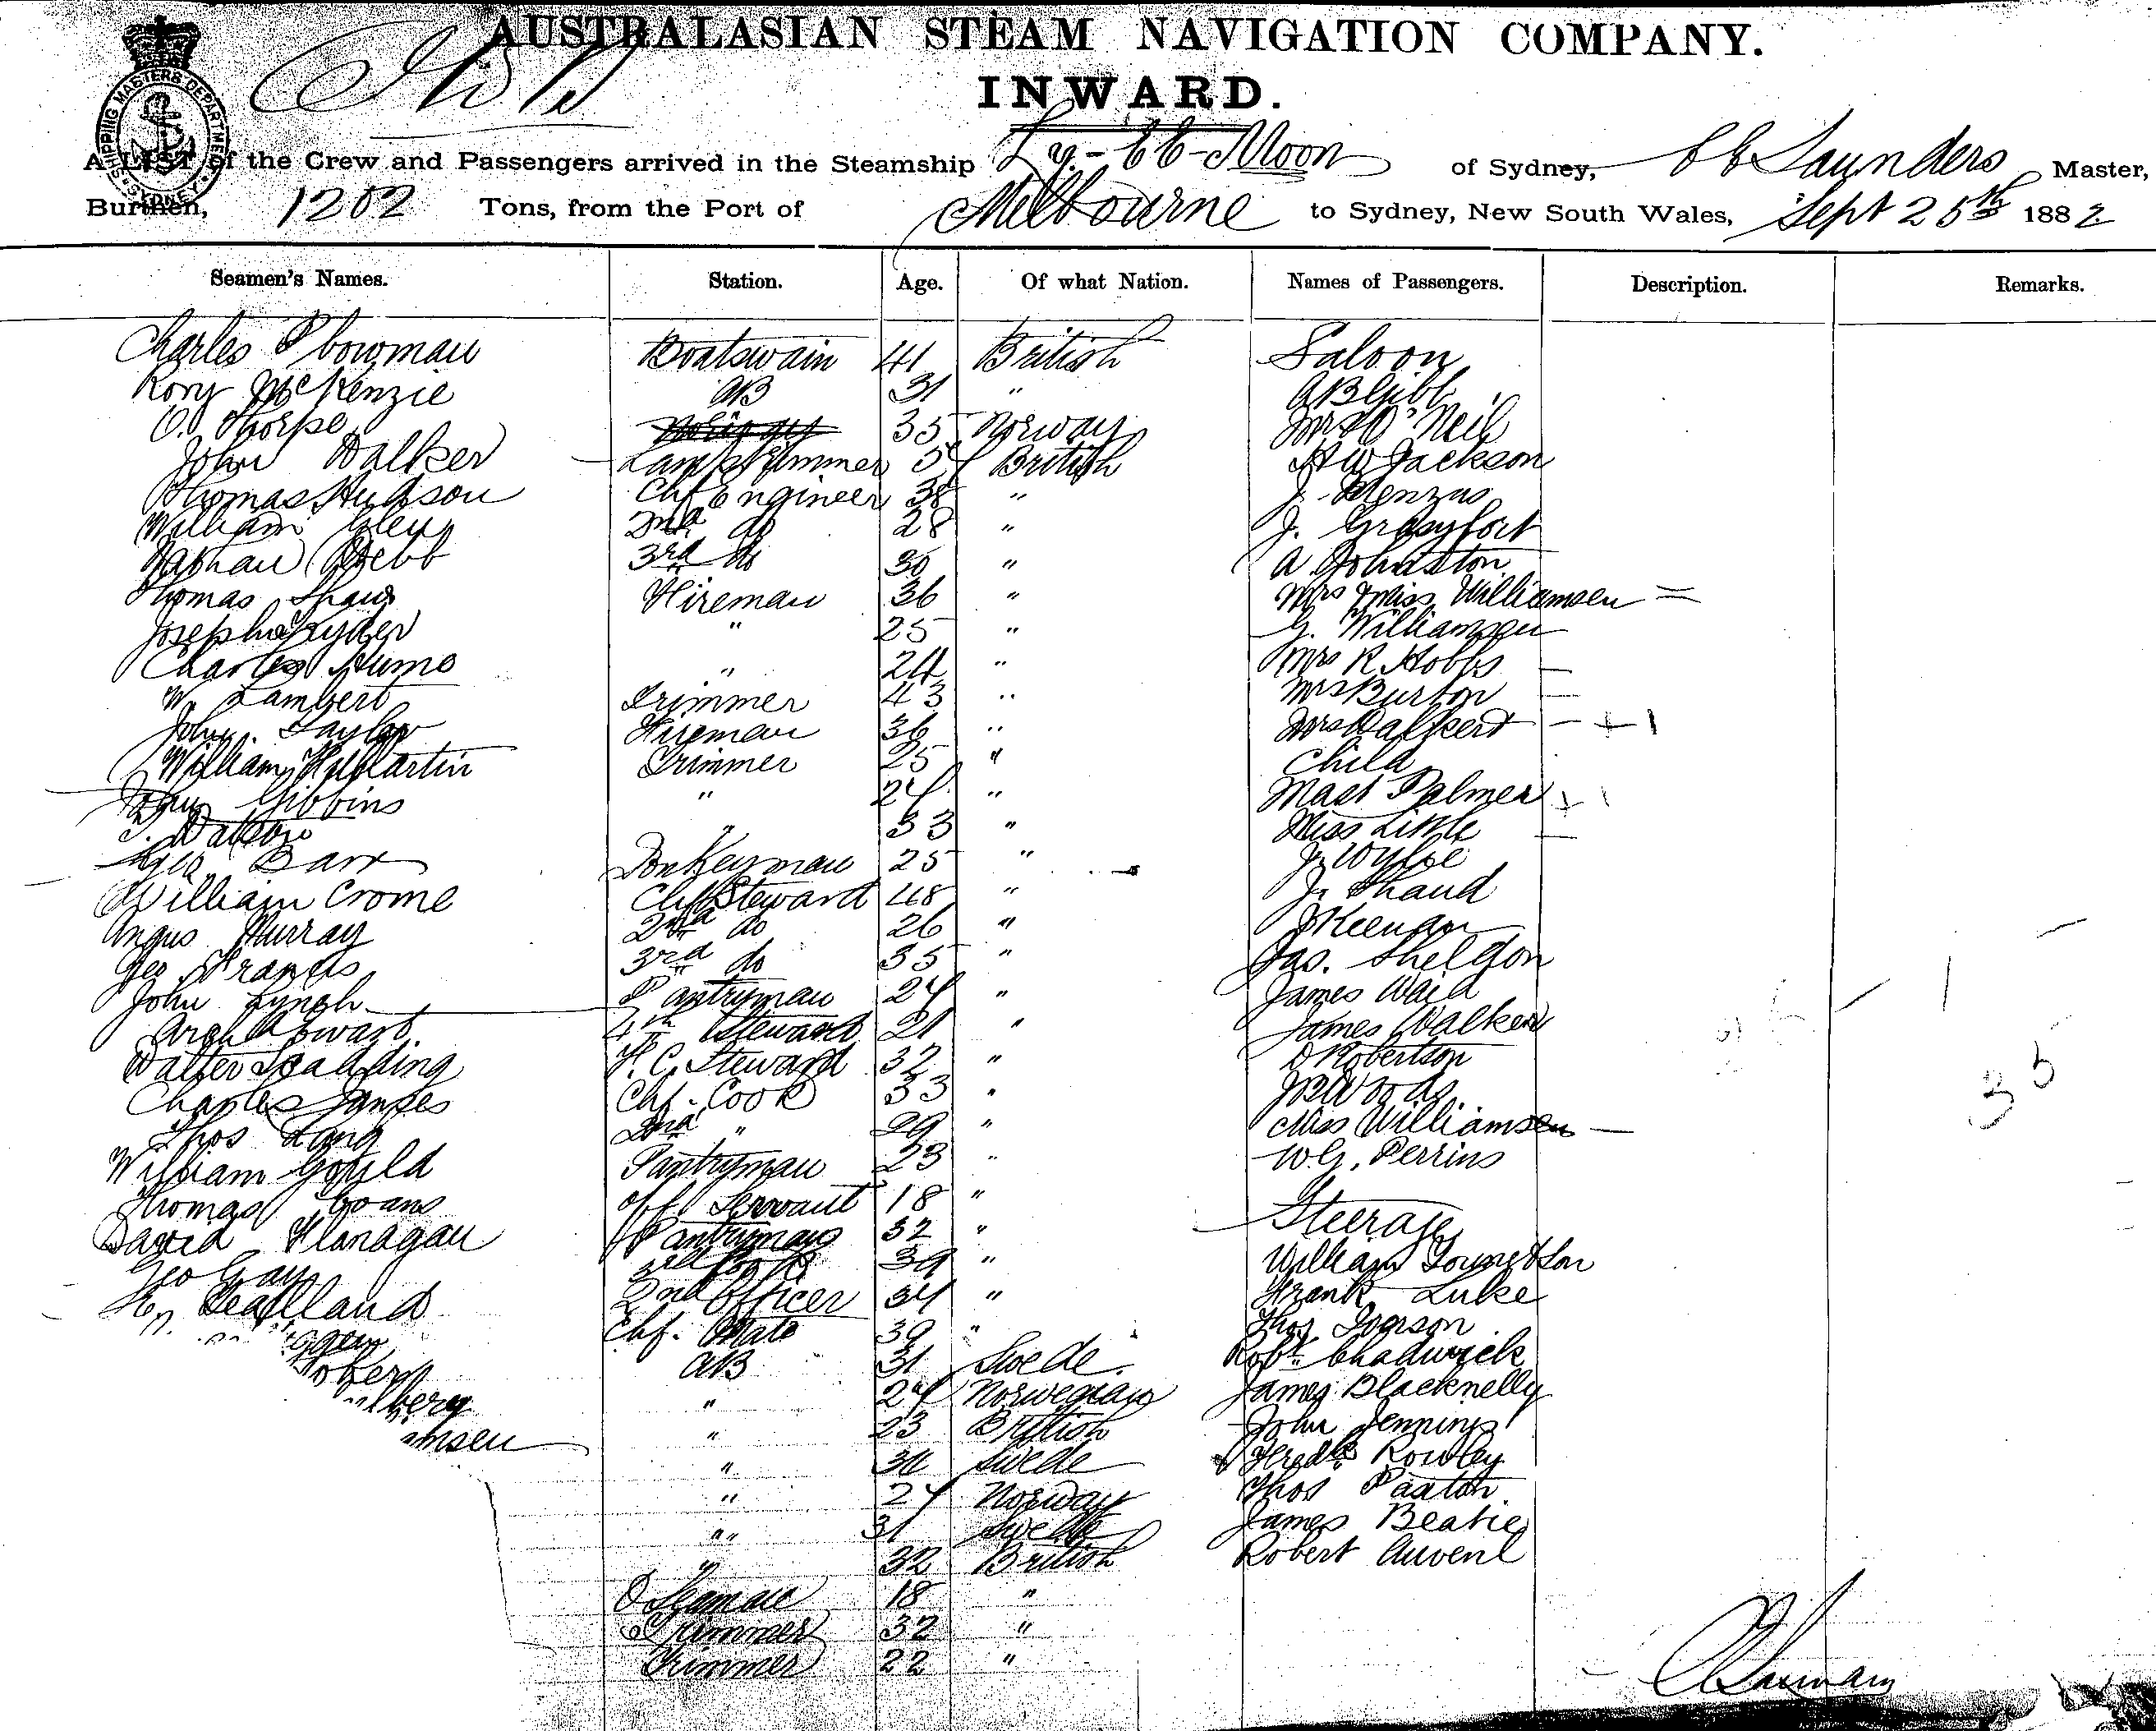 AUSTRALASIAN STEAM NAVIGATION COMPANY.
INWARD.
SHIPPING MASTERS DEPARTMENT SYDNEY
A LIST of the Crew and Passengers arrived in the Steamship Ly-EE-Moon of Sydney, Saunders Master,
Burthen, 1202 Tons, from the Port of Melbourne to Sydney, New South Wales, Sept 25th 1882
Seamen's Names. Station. Age. Of what Nation. Names of Passengers. Description. Remarks.
Charles P bowman Boatswain 41 British Saloon
Rory McKenzie AB 31 " AB Gibb
O. Thorpe Norway 35 Norway Mrs O'Neil
John Walker Lamptrimmer British HW Jackson
Thomas Hudson Chf Engineer 38 " J. Menzies
William Glen 2nd do 28 "
Nathan Webb 3rd do 30 " A Johnston
Thomas Shaw Fireman 36 " Mrs Miss Williamsen =
Joseph Ryder " 25 " G. Williamsen
Charles Hume " 24 " Mrs R Hobbs —
W. Lambert Trimmer 43 " Mrs Burton —
John Taylor Fireman 36 "
William Trimmer 25 " Child
John Gibbins " 24 " Mast Palmer
T. " 33 " Miss Little —
Geo Barr Donkeyman 25 " J. Wylie
William Crome Chf Steward 48 " J. Shand
Angus Murray 2nd do 26 " J Keenan
Geo Francis 3rd do 35 " Jas. Sheldon
John Lynch Pantryman 24 " James Waid
Arch Cowart. 4th Steward 21 " James Walker
Walter Spalding F.C. Steward 32 " D Robertson
Charles Chf. Cook 33 " Woods
Thos Lang 2nd " 29 " Miss Williamsen —
William Gould Pantryman 23 " W.G. Perrins
Thomas off. Servant 18 "
David Flanagan Pantryman 32 " Steerage
Geo Gay 3rd Cook 39 " William Young & Son
2nd Officer 34 " Frank Luke
Chf. Mate 39 " Thos
AB 31 Swede. Robt. Chadwick
" 24 Norwegian James Blacknelly
" 23 British John Jennings
" 34 Swede Fredk Rowley
" 24 Norway Thos Paxton
" 31 Swede James Beatie
" 32 British Robert
O Seaman 18 "
Trimmer 32 "
Trimmer 22 "
35